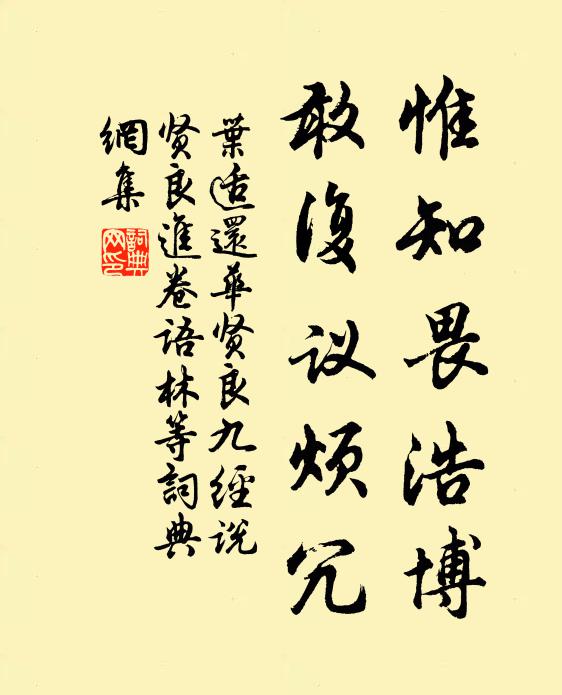 惟知畏浩博
敢復议烦冗
葉适還華贤良九經说
贤良進卷语林等詞典
網集
詞典网印